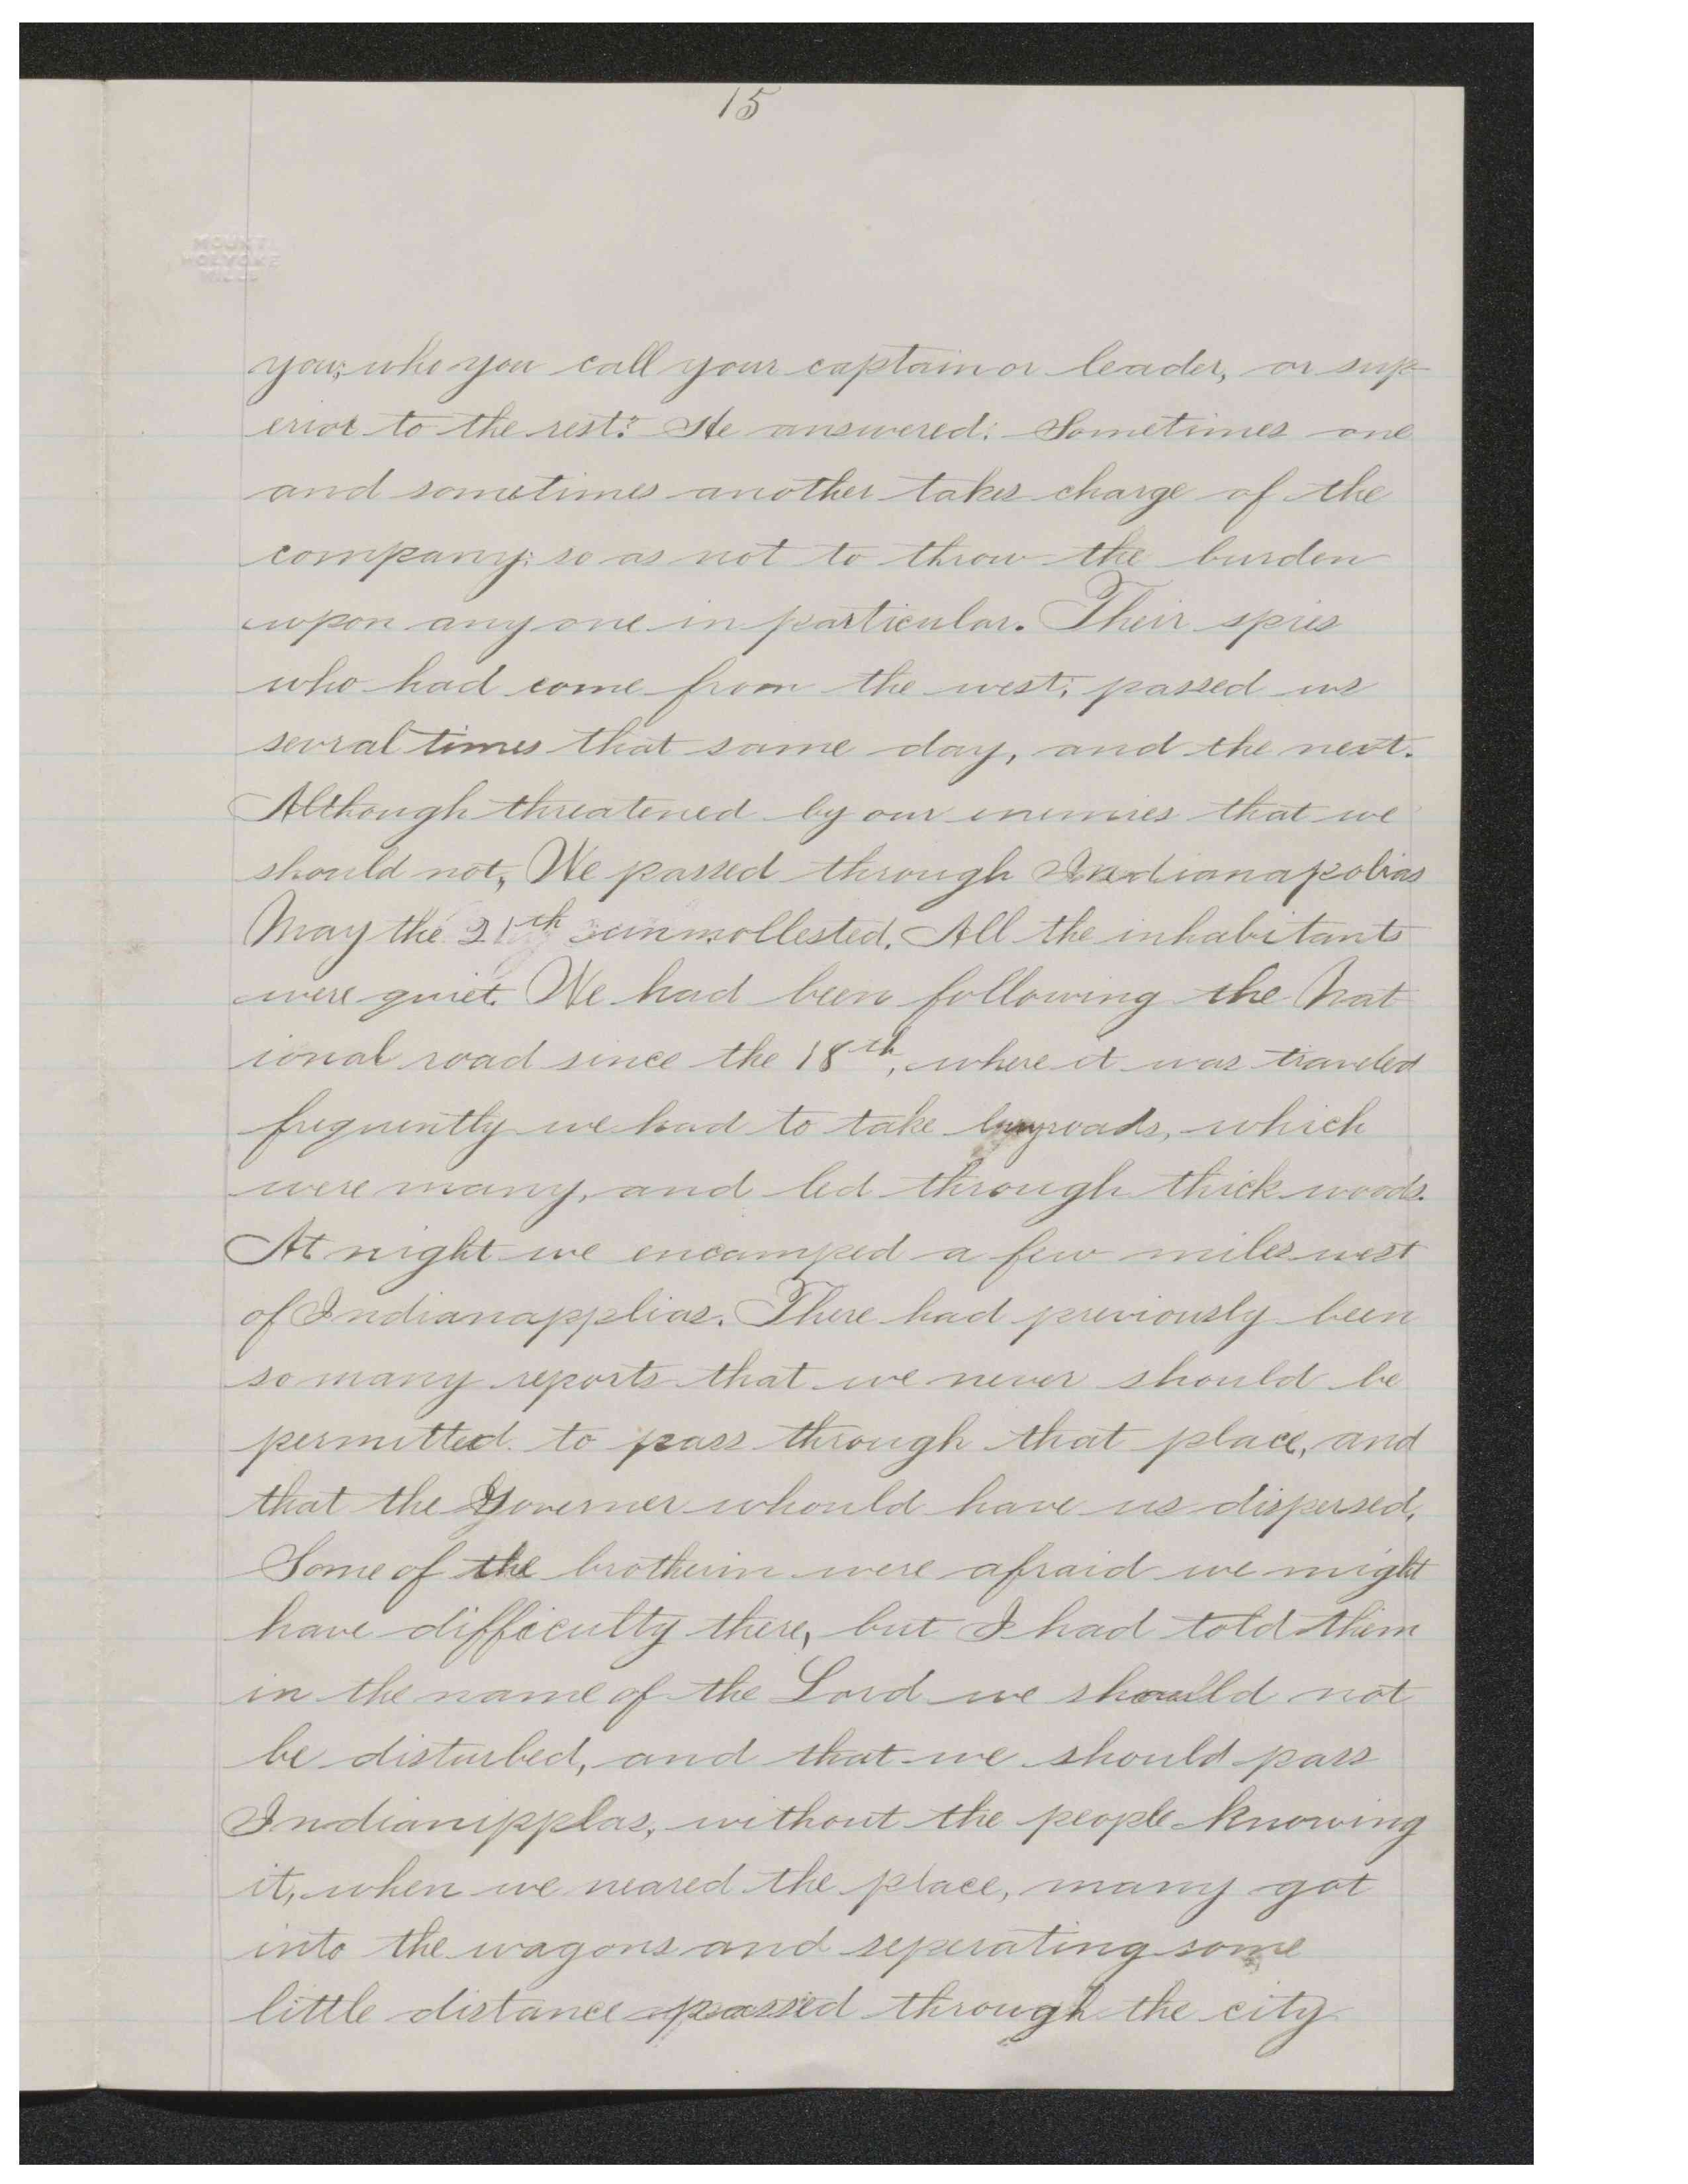 15
MOUNT
HOLYOKE
MILLS
you; who you call your captain or leader, or sup
erior to the rest? He answered: Sometimes one
and sometimes another takes charge of the
company; so as not to throw the burden
upon any one in particular. Their spies
who had come from the west; passed us
sevral times that same day, and the next.
Although threatened by our enemies that we
should not, We passed through Indianapolias
May the 21th unmollested. All the inhabitants
were quiet. We had been following the Nat
ional road since the 18th, where it was traveled
frequently we had to take byroads, which
were many, and led through thick woods.
At night we encamped a few miles west
of Indianapplias. There had previously been
so many reports that we never should be
permitted to pass through that place, and
that the Governer whould have us dispersed,
Some of the brotherin were afraid we might
have difficulty there, but I had told them
in the name of the Lord we should not
be disturbed, and that we should pass
Indianipplas, without the people knowing
it, when we neared the place, many got
into the wagons and seperating some
little distance passed through the city